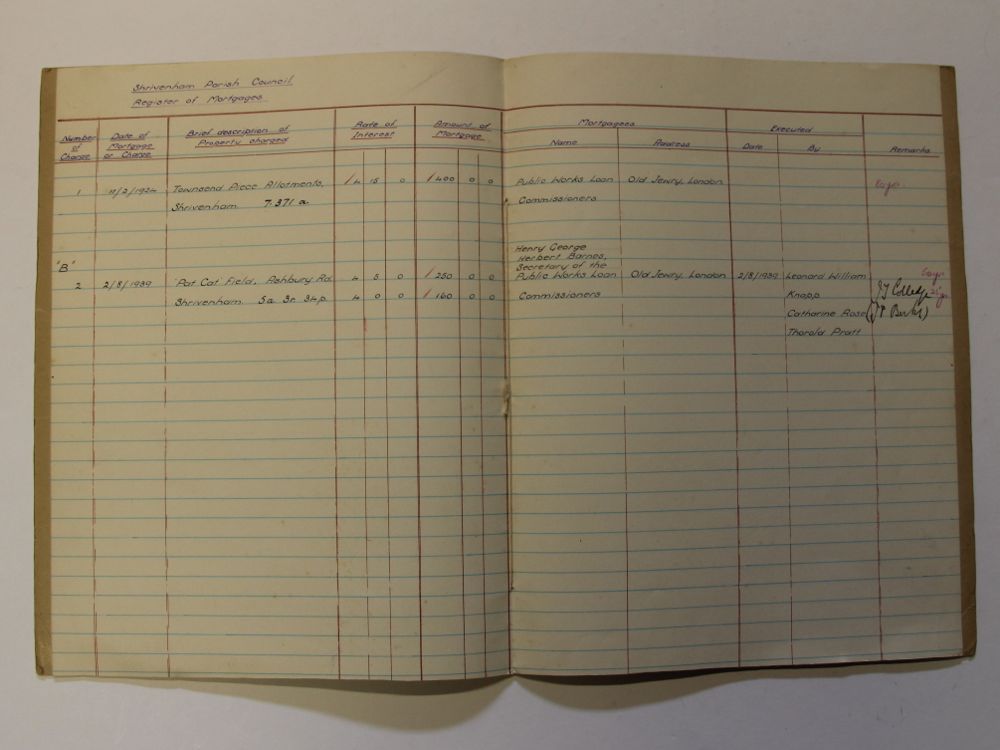 Shrivenham Parish Council
Register of Mortgages
Number of Charge
Date of Mortgage or Charge
Brief description of Property charged
Rate of Interest
Amount of Mortgage
Mortgagees
Name
Address
Executed
Date
By
Remarks
1 11/3/1924 Townsend Piece Allotments, 4 15 0 400 0 0 Public Works Loan Old Jewry, London
Shrivenham 7.371 a. Commissioners
Henry George
Herbert Barnes,
"B" Secretary of the
2 2/8/1939 Pat Cat Field, Ashbury Rd. 4 5 0 250 0 0 Public Works Loan Old Jewry, London 2/8/1939 Leonard William
Shrivenham 5a 3r 34p 4 0 0 160 0 0 Commissioners Knapp
Catharine Rose
Thorold Pratt